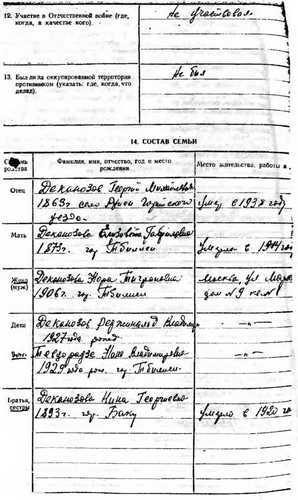 12. Участие в Отечественной войне (где, когда, в качестве кого)
Не участвовал.
13. Был ли на оккупированной территории противником (указать: где, когда, что делал).
Не был
14. СОСТАВ СЕМЬИ
Степень родства
Фамилия, имя, отчество, год и место рождения
Место жительства, работы и
Отец
Деканозов Георгий
1863 г. село Горийского
уезда.
умер в 1938 году
Мать
Деканозова Елизавета
1873 г. гор. Тбилиси
Умерла в 1944
Жена
(муж)
Деканозова Нора Тиграновна
1906 г. гор. Тбилиси
Москва, ул.
дом № 9
Дети
Деканозов Реджинальд
1927 года рожд
— " —
Нана Владимировна
1929 года рож. гор. Тбилиси.
— " —
Братья,
сестры
Деканозова Нина Георгиевна
1893 г. гор. Баку
Умерла в 1920